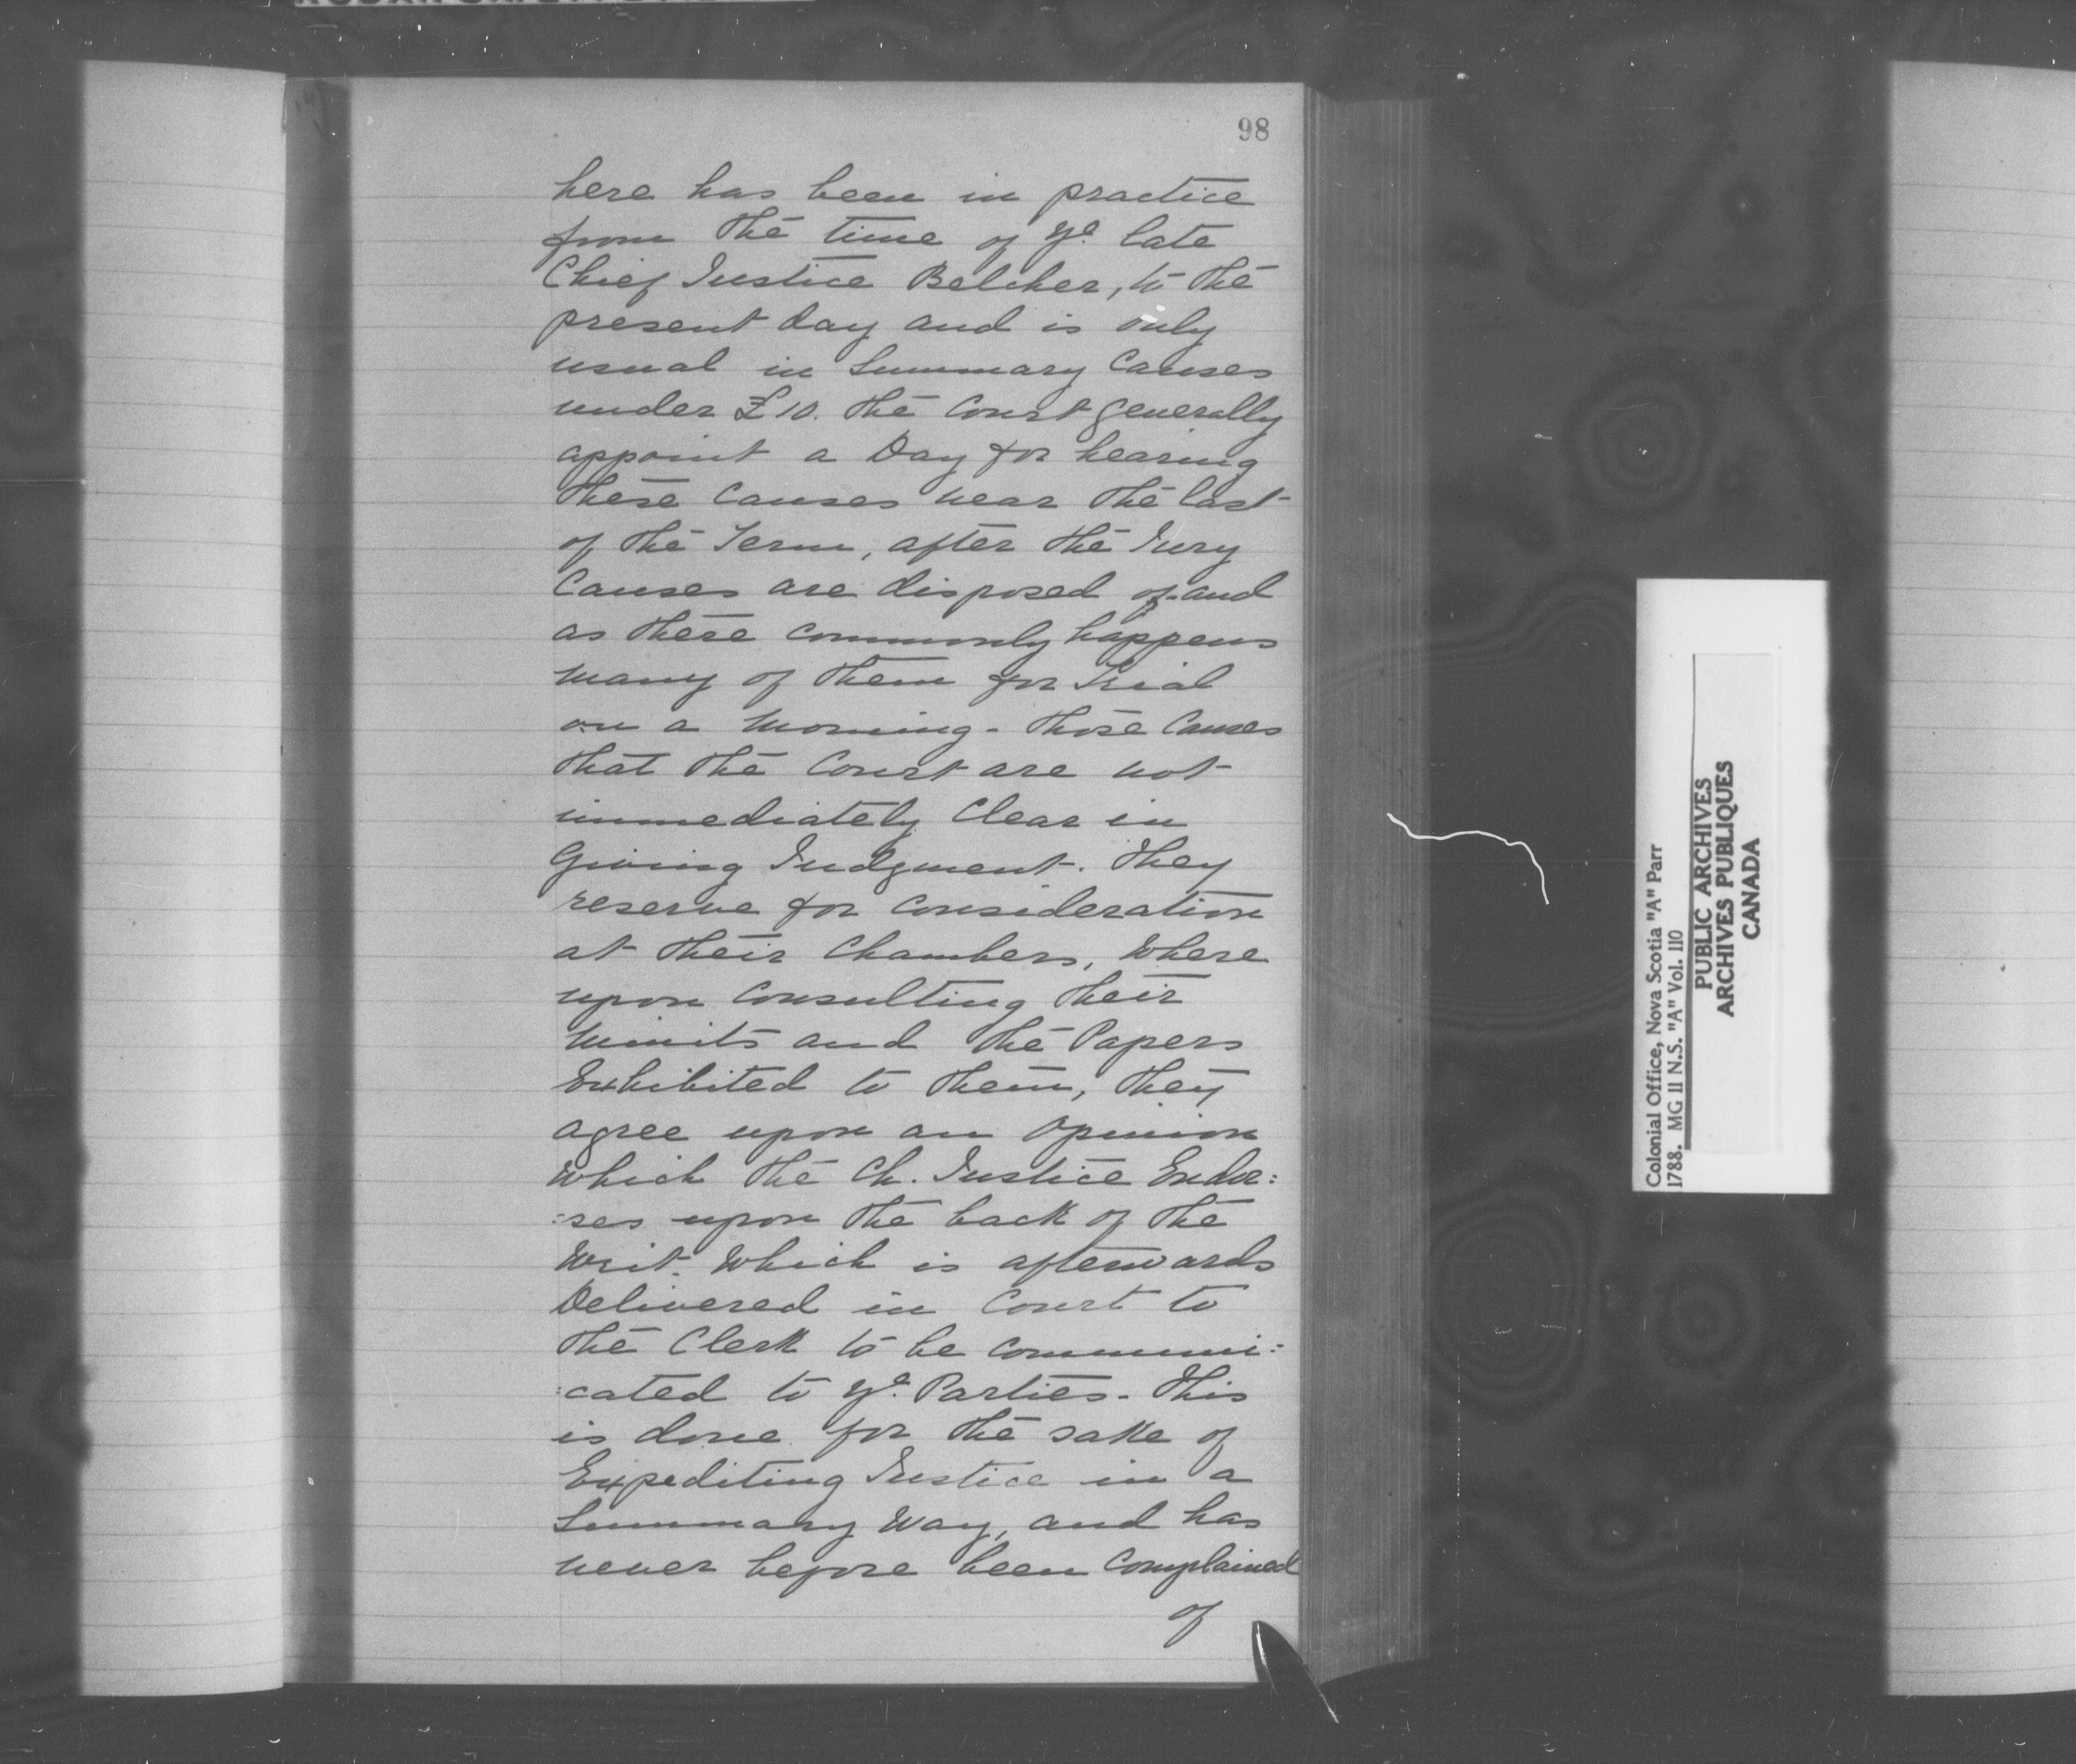 98
here has been in practice
from the time of ye. late
Chief Justice Belcher, to the
present day and is only
usual in Summary Causes
under £10. the Court generally
appoint a Day for hearing
these Causes near the last
of the Term, after the Jury
Causes are disposed of and
as there commonly happens
many of them for Trial
on a Morning - those Causes
that the Court are not
immediately Clear in
Giving Judgment. They
reserve for Consideration
at their Chambers, Where
upon Consulting their
Minits and the Papers
Exhibited to them, they
agree upon an Opinion
which the Ch. Justice Endor:
:ses upon the back of the
Writ. Which is afterwards
Delivered in Court to
the Clerk to be Communi:
:cated to ye. Parties - This
is done for the sake of
Expediting Justice in a
Summary Way, and has
never before been Complained
of
Colonial Office, Nova Scotia "A" Parr
1788. MG 11 N.S. "A" Vol. 110
PUBLIC ARCHIVES
ARCHIVES PUBLIQUES
CANADA